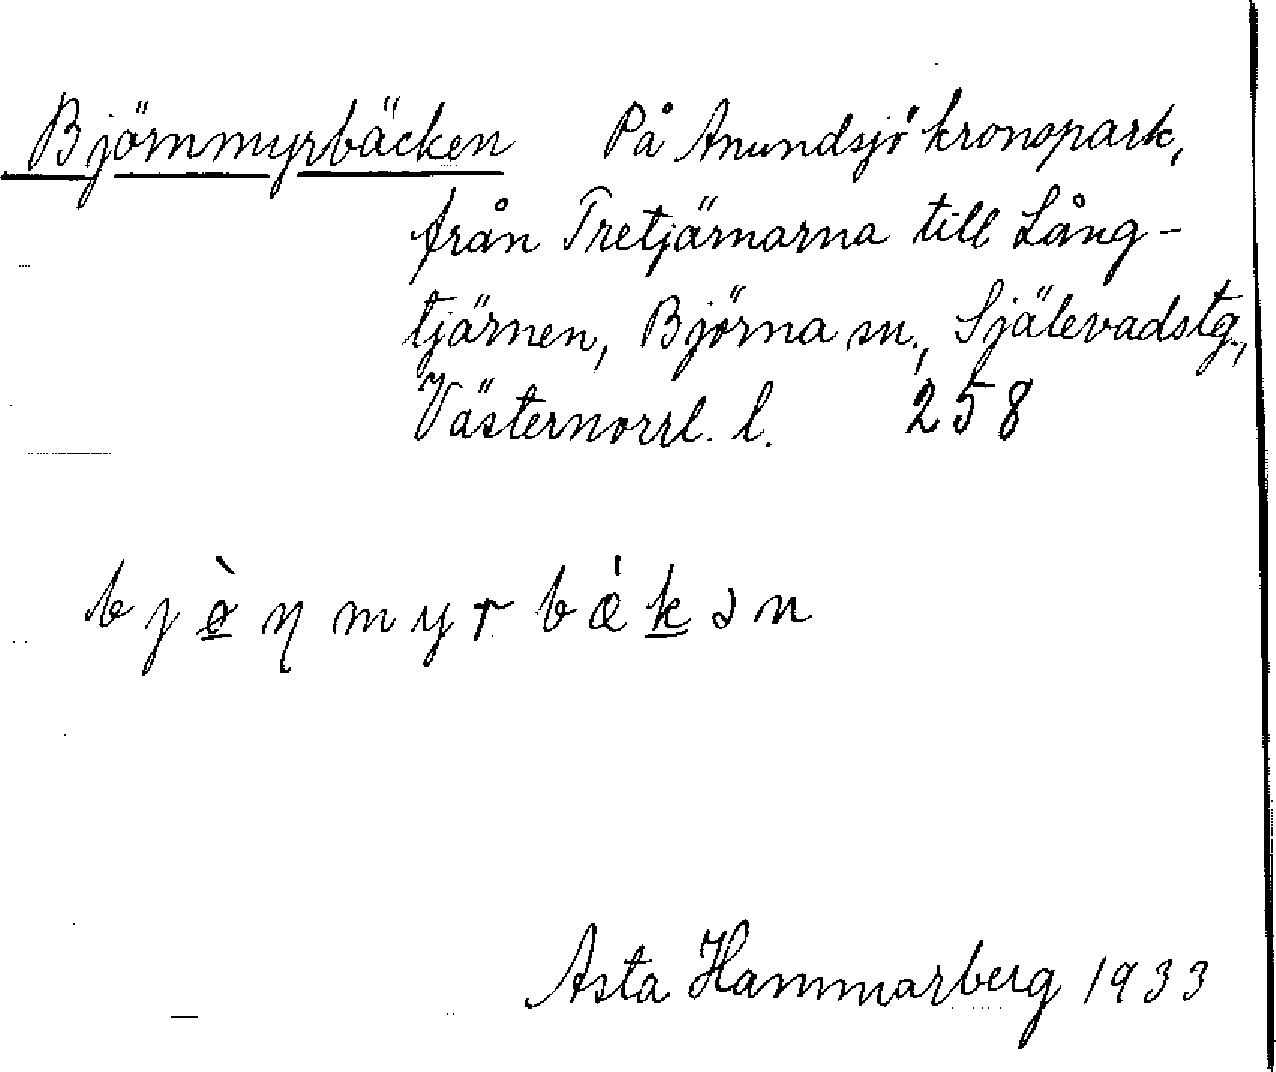 Björnmyrbäcken På Anundsjö kronopark,
från Tretjärnarna till Lång-
tjärnen, Björna sn., Själevadstg.,
Västernorrl. l. 258
bjø̀ɳmyrbǽkən
Asta Hammarberg 1933